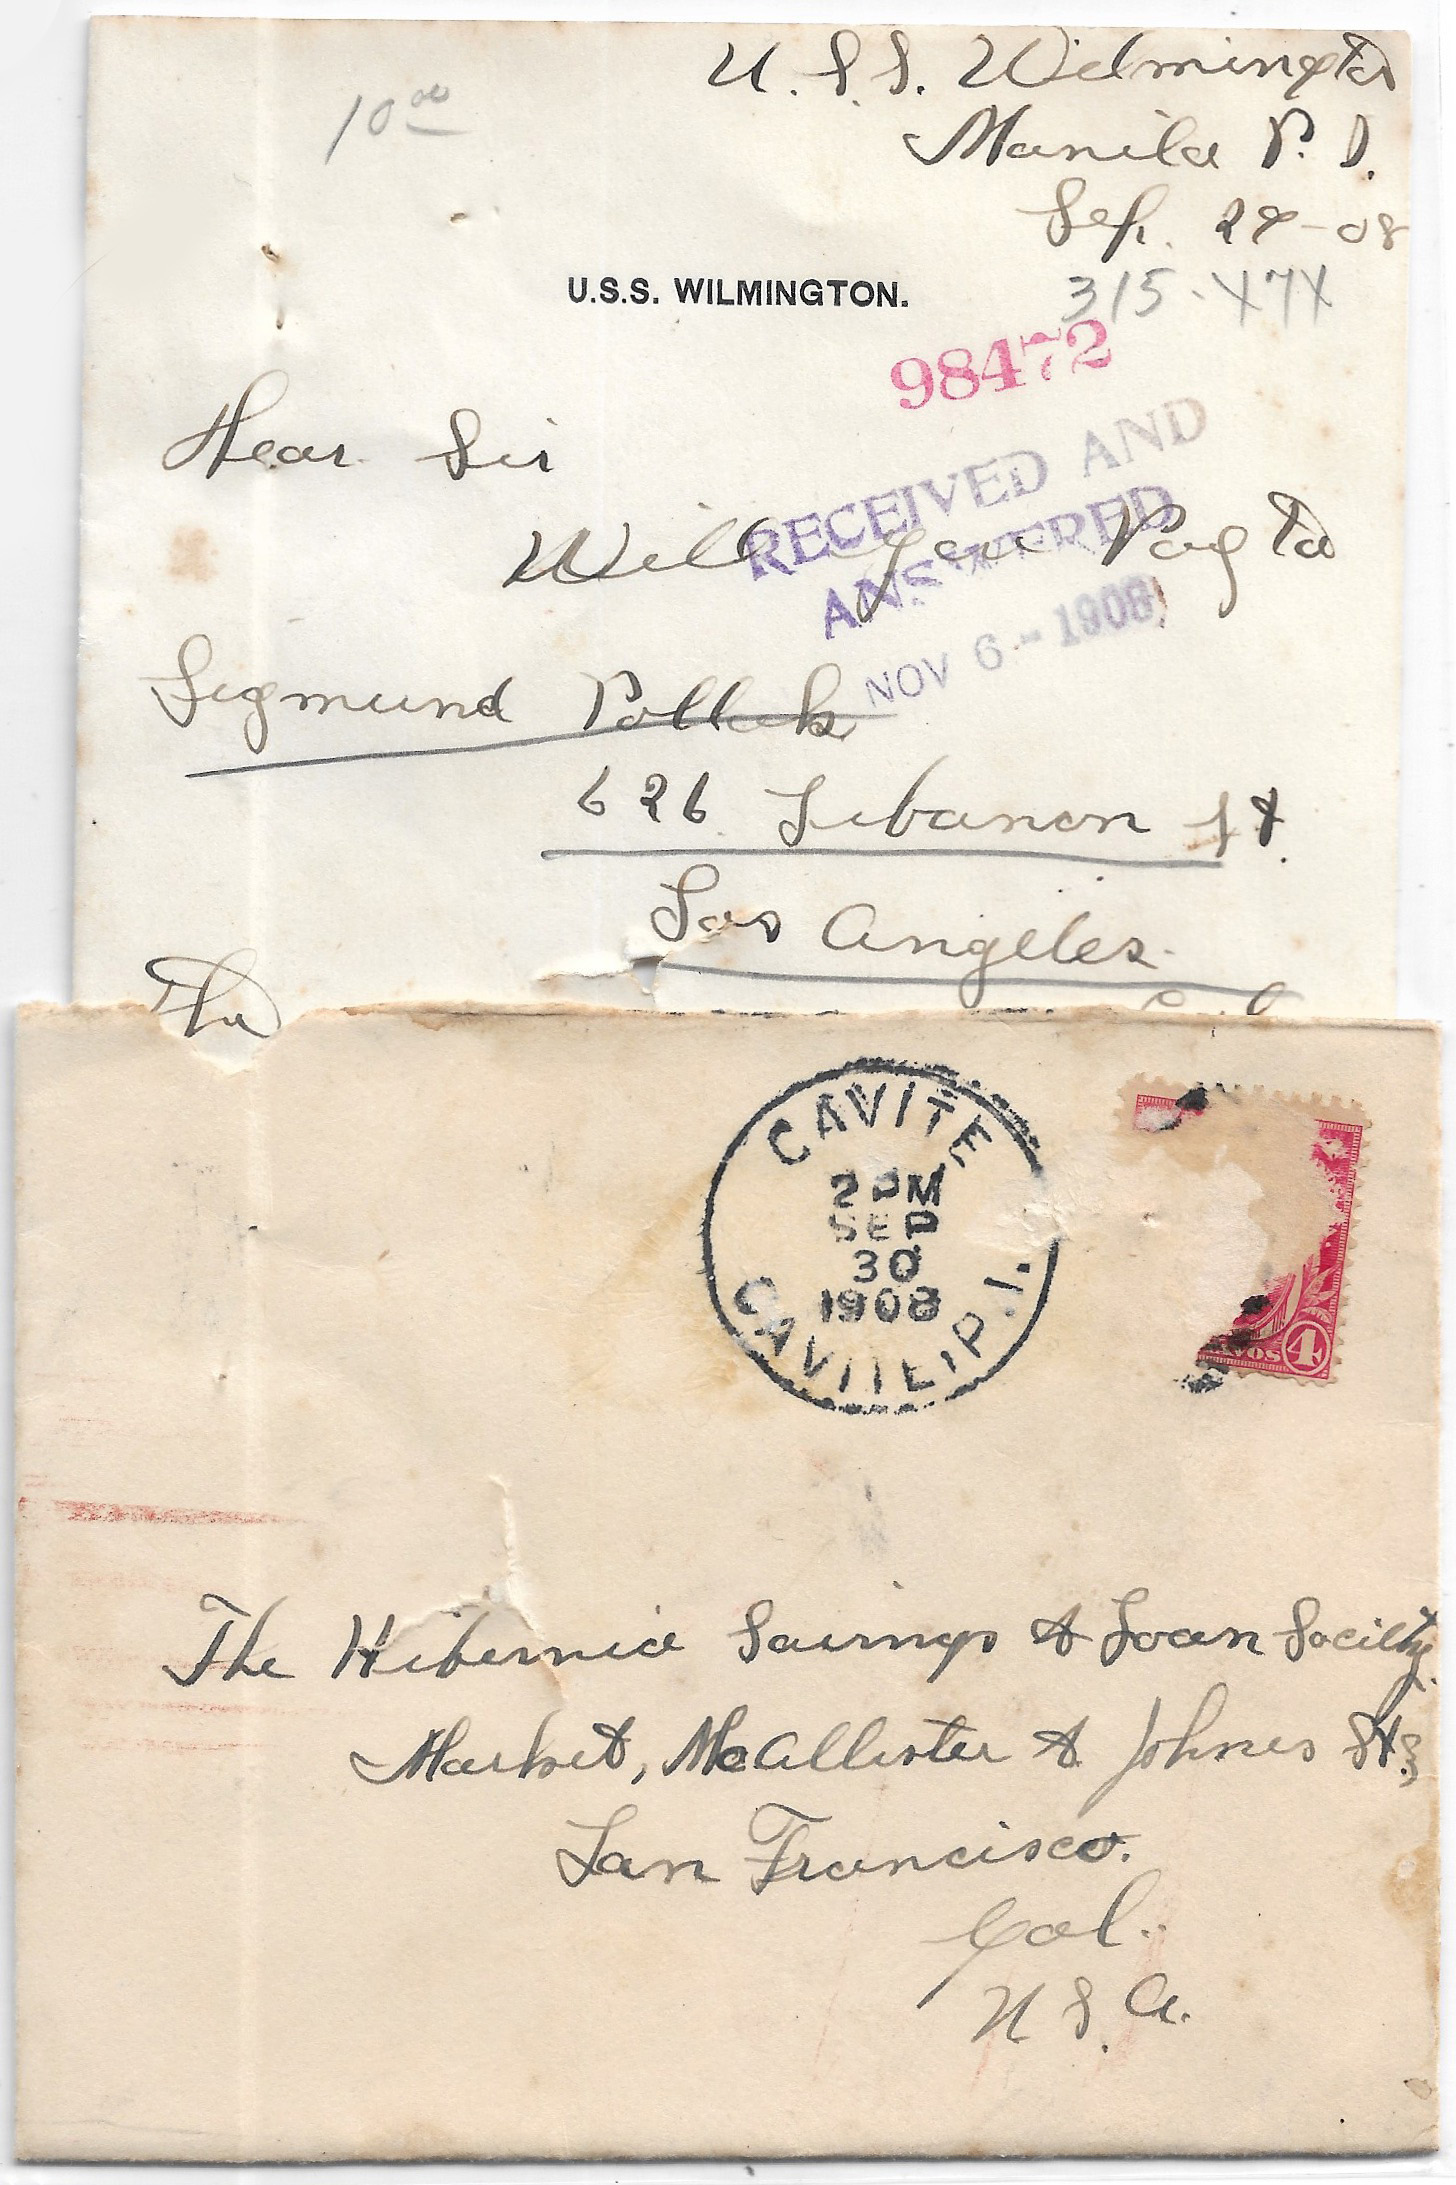 U.S.S. Wilmington
Manila P. I.
10 00
Sep. 29-08
U.S.S. WILMINGTON.
315-
98472
Dear Sir
RECEIVED AND
ANSWERED
NOV 6 - 1908
Will you Pay To
Sigmund Pollak
626 Lebanon St.
Los Angeles.
Cal
The
CAVITE
2 PM
SEP
30
1908
CAVITE, P.I.
VOS 4
The Hibernia Savings & Loan Society.
Market, McAllister & Johnes Sts
San Francisco.
Cal.
U S. A.